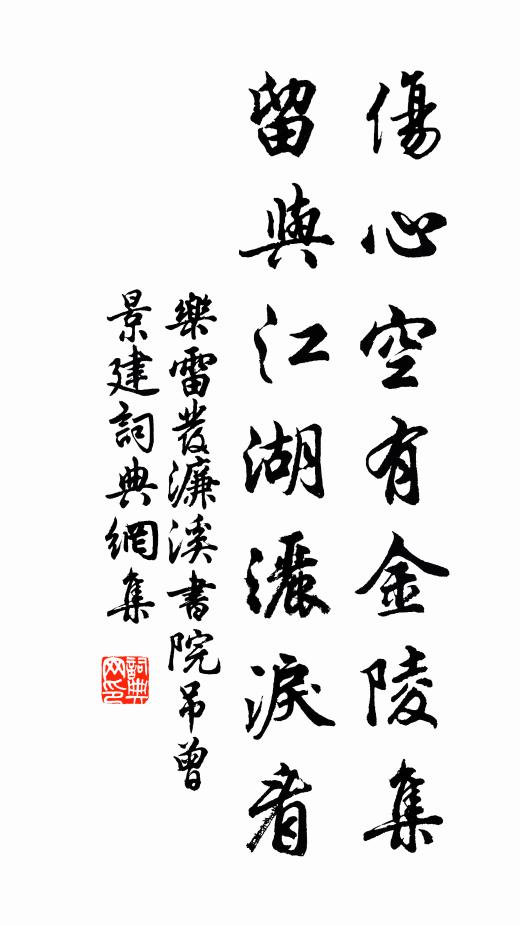 傷心空有金陵集
留與江湖灑淚看
樂雷發濂溪書院吊曾
景建詞典網集
詞典网印